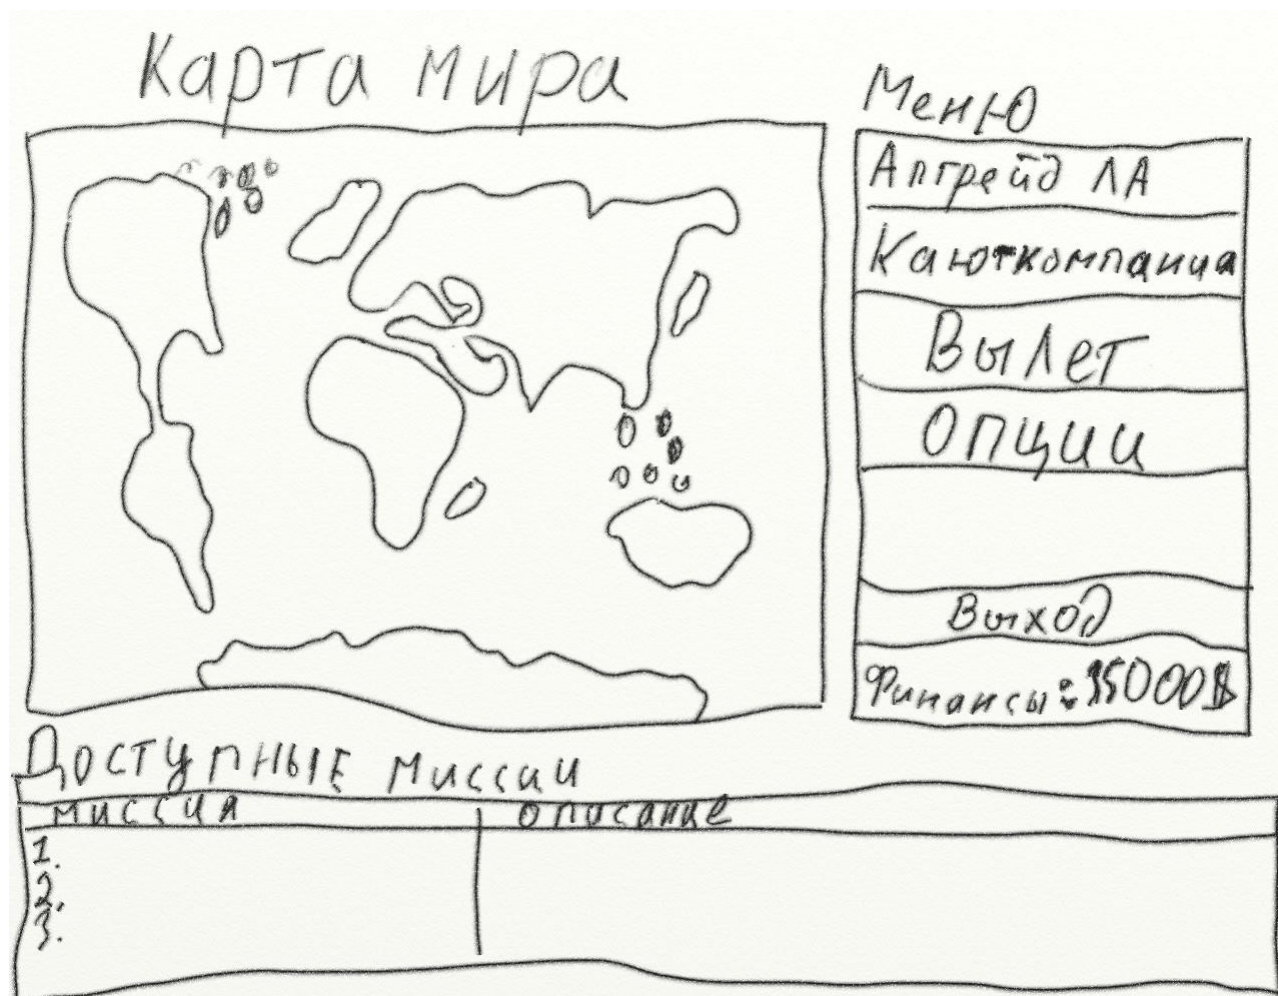 Карта мира
Меню
Апгрейд ЛА
Каюткомпания
Вылет
Опции
Выход
Финансы: 15000$
Доступные миссии
миссия описание
1.
2.
3.